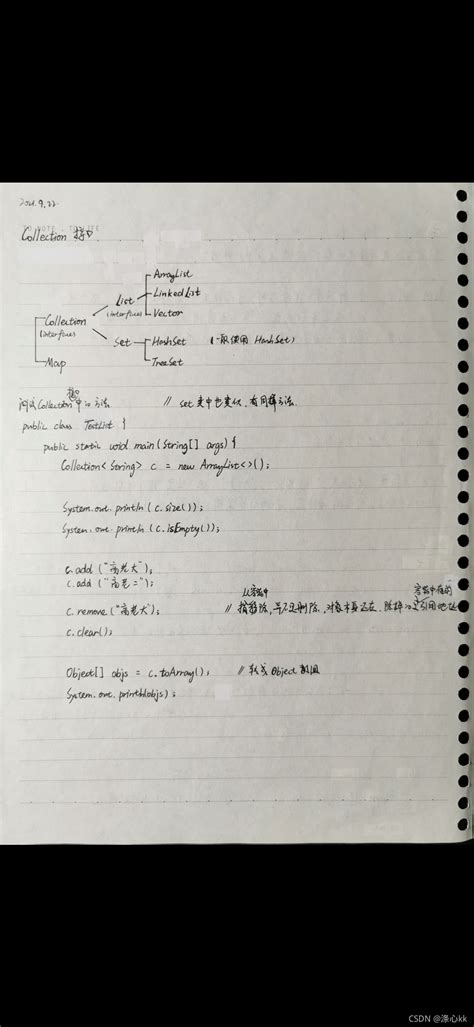 2021.9.22
Collection 接口
ArrayList
List LinkedList
(interface) Vector
Collection
(interface)
Set HashSet (一般使用 HashSet)
Map TreeSet
接口
测试Collection中的方法 // set 类中也类似,有同样方法.
public class TestList {
public static void main(String[] args) {
Collection<String> c = new ArrayList<>();
System.out.println(c.size());
System.out.println(c.isEmpty());
c.add("高老大");
c.add("高老二");
从容器中 容器中存的
c.remove("高老大"); // 指移除,并不是删除,对象本身还在.
c.clear();
Object[] objs = c.toArray(); // 转成Object数组
System.out.println(objs);
CSDN @涤心kk